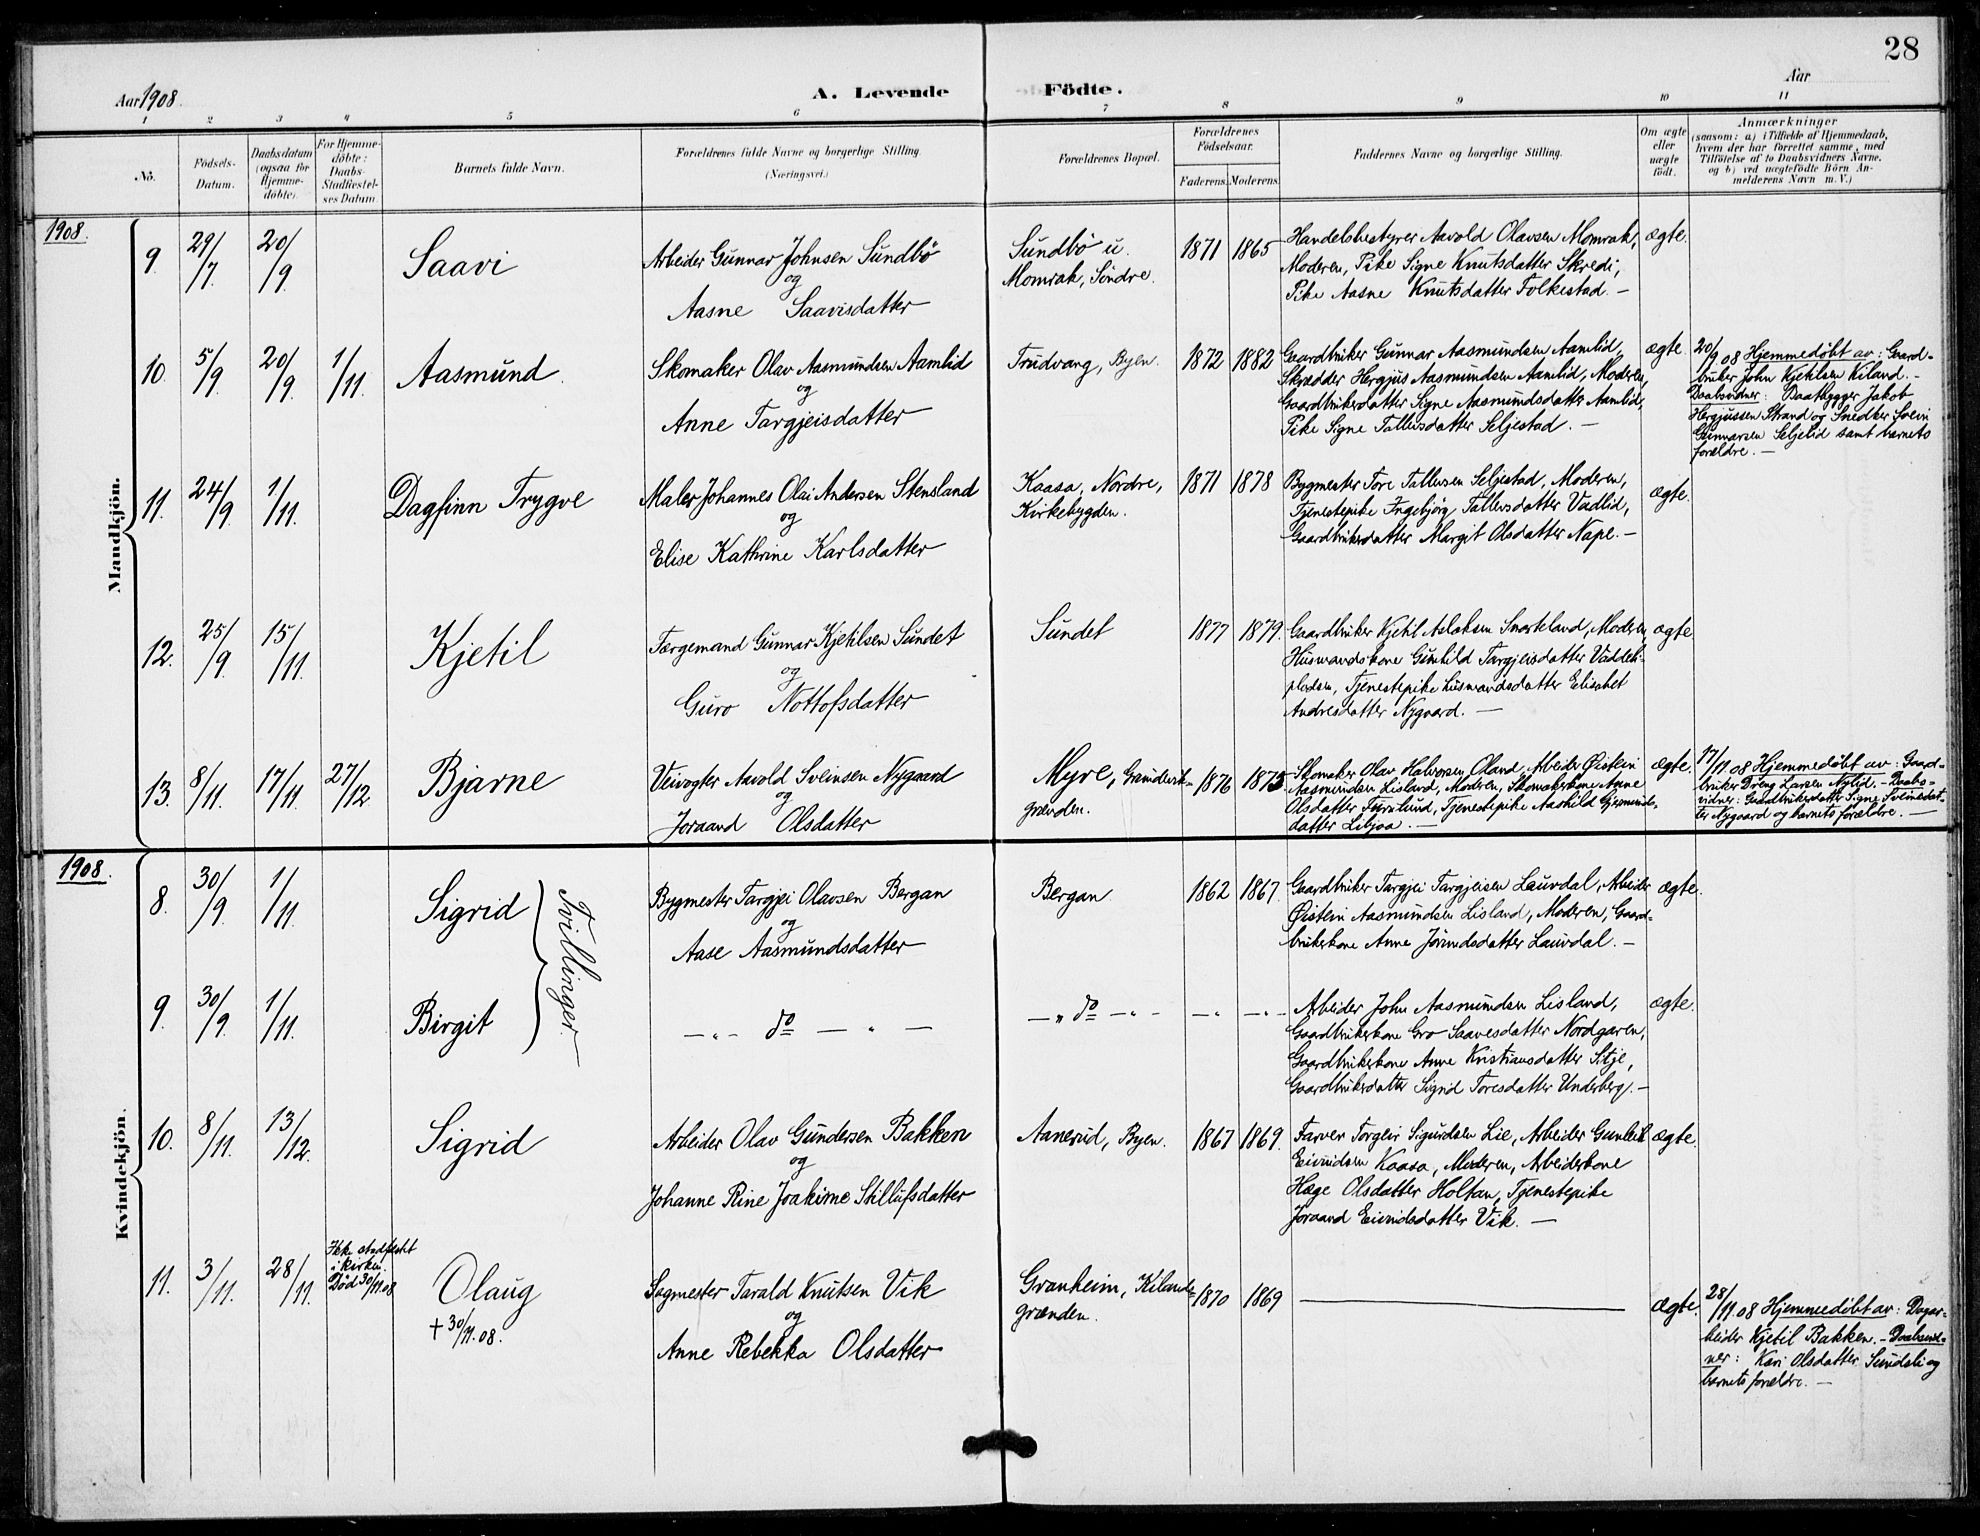 28
Aar 1908.
A. Levende Födte.
Aar
1 2 3 4 5 6 7 8 9 10 11
No.
Födsels-Datum.
Daabsdatum (ogsaa for Hjemme-döbte).
For Hjemme-döbte: Daabs-Stadfæstel-ses Datum.
Barnets fulde Navn.
Forældrenes fulde Navne og borgerlige Stilling.
(Næringsvei.)
Forældrenes Bopæl.
Forældrenes Födselsaar.
Faderens. Moderens.
Faddernes Navne og borgerlige Stilling.
Om ægte eller uægte födt.
Anmærkninger
(saasom: a) i Tilfælde af Hjemmedaab,
hvem der har forrettet samme, med
Tilföielse af to Daabsvidners Navne,
og b) ved uægtefödte Börn An-
melderens Navn m. V.)
1908.
Mandkjön.
9. 29/7. 20/9. Saavi
Arbeider Gunnar Johnsen Sundbö
og
Aasne Saavisdatter
Sundbö u.
Momrak, Söndre.
1871 1865
Handelsbestyrer Aavold Olavsen Momrak,
Moderen, Pike Signe Knutsdatter Skredi,
Pike Aasne Knutsdatter Folkestad. —
ægte.
10. 5/9. 20/9. 1/11. Aasmund.
Skomaker Olav Aasmundsen Aamlid
og
Anne Targjeisdatter
Trudvang, Byen.
1872 1882
Gaardbruker Gunnar Aasmundsen Aamlid,
Skrædder Hergjus Aasmundsen Aamlid, Moderen,
Gaardbrukerdatter Signe Aasmundsdatter Aamlid,
Pike Signe Tallevsdatter Seljestad. —
ægte.
20/9 08 Hjemmedøbt av: Gaard-
bruker John Kjetilsen Kiland. -
Daabsvidner: Baatbygger Jakob
Hergjussen Strand og Snedker Svein
Gunnarsen Seljelid samt barnets
forældre. —
11. 24/9. 1/11. Dagfinn Trygve
Maler Johannes Olai Andersen Stensland
og
Elise Kathrine Karlsdatter
Kaasa, Nordre,
Kirkebygden.
1871 1878
Bygmester Tore Tallevsen Seljestad, Moderen,
Tjenestepike Ingebjörg Tallevsdatter Vadlid,
Gaardbrukerdatter Margit Olsdatter Nape. —
ægte.
12. 25/9. 15/11. Kjetil
Færgemand Gunnar Kjetilsen Sundet
og
Guro Nottofsdatter
Sundet
1877 1879.
Gaardbruker Kjetil Aslaksen Snarteland, Moderen,
Husmandskone Gunhild Targjeisdatter
Tjenestepike husmandsdatter Elisabet
Andresdatter Nygaard. —
ægte
13. 8/11. 17/11. 27/12. Bjarne
Veivogter Aavold Sveinsen Nygaard
og
Joraand Olsdatter
Myre,
grænden.
1876 1875
Skomaker Olav Halvorsen Öland, Arbeider Øistein
Aasmundsen Lisland, Moderen, Skomakerkone Anne
Olsdatter Tjenestepike Aashild Gjermunds-
datter Libjaa. —
ægte.
17/11 08 Hjemmedøbt av: Gaard-
bruker Dreng Larsen Nylid. - Daabs-
vidner: Gaardbrukerdatter Signe Sveinsdat-
ter Nygaard og barnets forældre. —
1908.
Kvindekjön.
8. 30/9. 1/11. Sigrid
Tvillinger.
Bygmester Targjei Olavsen Bergan
og
Aase Aasmundsdatter
Bergan
1862 1867.
Gaardbruker Targjei Targjeisen Lauvdal, Arbeider
Øistein Aasmundsen Lisland, Moderen, Gaard-
brukerkone Anne Jörundsdatter Lauvdal. —
ægte.
9. 30/9. 1/11. Birgit
—„— do — „ —
—„ do —„—
—„— —„—
Arbeider John Aasmundsen Lisland,
Gaardbrukerkone Gro Saavesdatter Nordgaren,
Gaardbrukerkone Anne Kristiansdatter Sitje,
Gaardbrukerdatter Sigrid Toresdatter Underberg. —
ægte.
10. 8/11. 13/12. Sigrid
Arbeider Olav Gundersen Bakken
og
Johanne Rine Joakime Stillufsdatter
Aanerud, Byen.
1867 1869.
Farver Torgeir Sigurdsen Lie, Arbeider Gunleik
Eivindsen Kaasa, Moderen, Arbeiderkone
Hæge Olsdatter Holtan, Tjenestepike
Joraand Eivindsdatter Vik. —
ægte.
11. 3/11. 28/11.
Ikke stadfæstet
i kirken.
Död 30/11 08
Olaug
† 30/11. 08.
Sagmester Tarald Knutsen Vik
og
Anne Rebekka Olsdatter
Granheim, Kilands-
grænden.
1870 1869
ægte.
28/11. 08 Hjemmedøbt av: Dagar-
beider Kjetil Bakken. - Daabsvid-
ner: Kari Olsdatter Sundsli og
barnets forældre. —